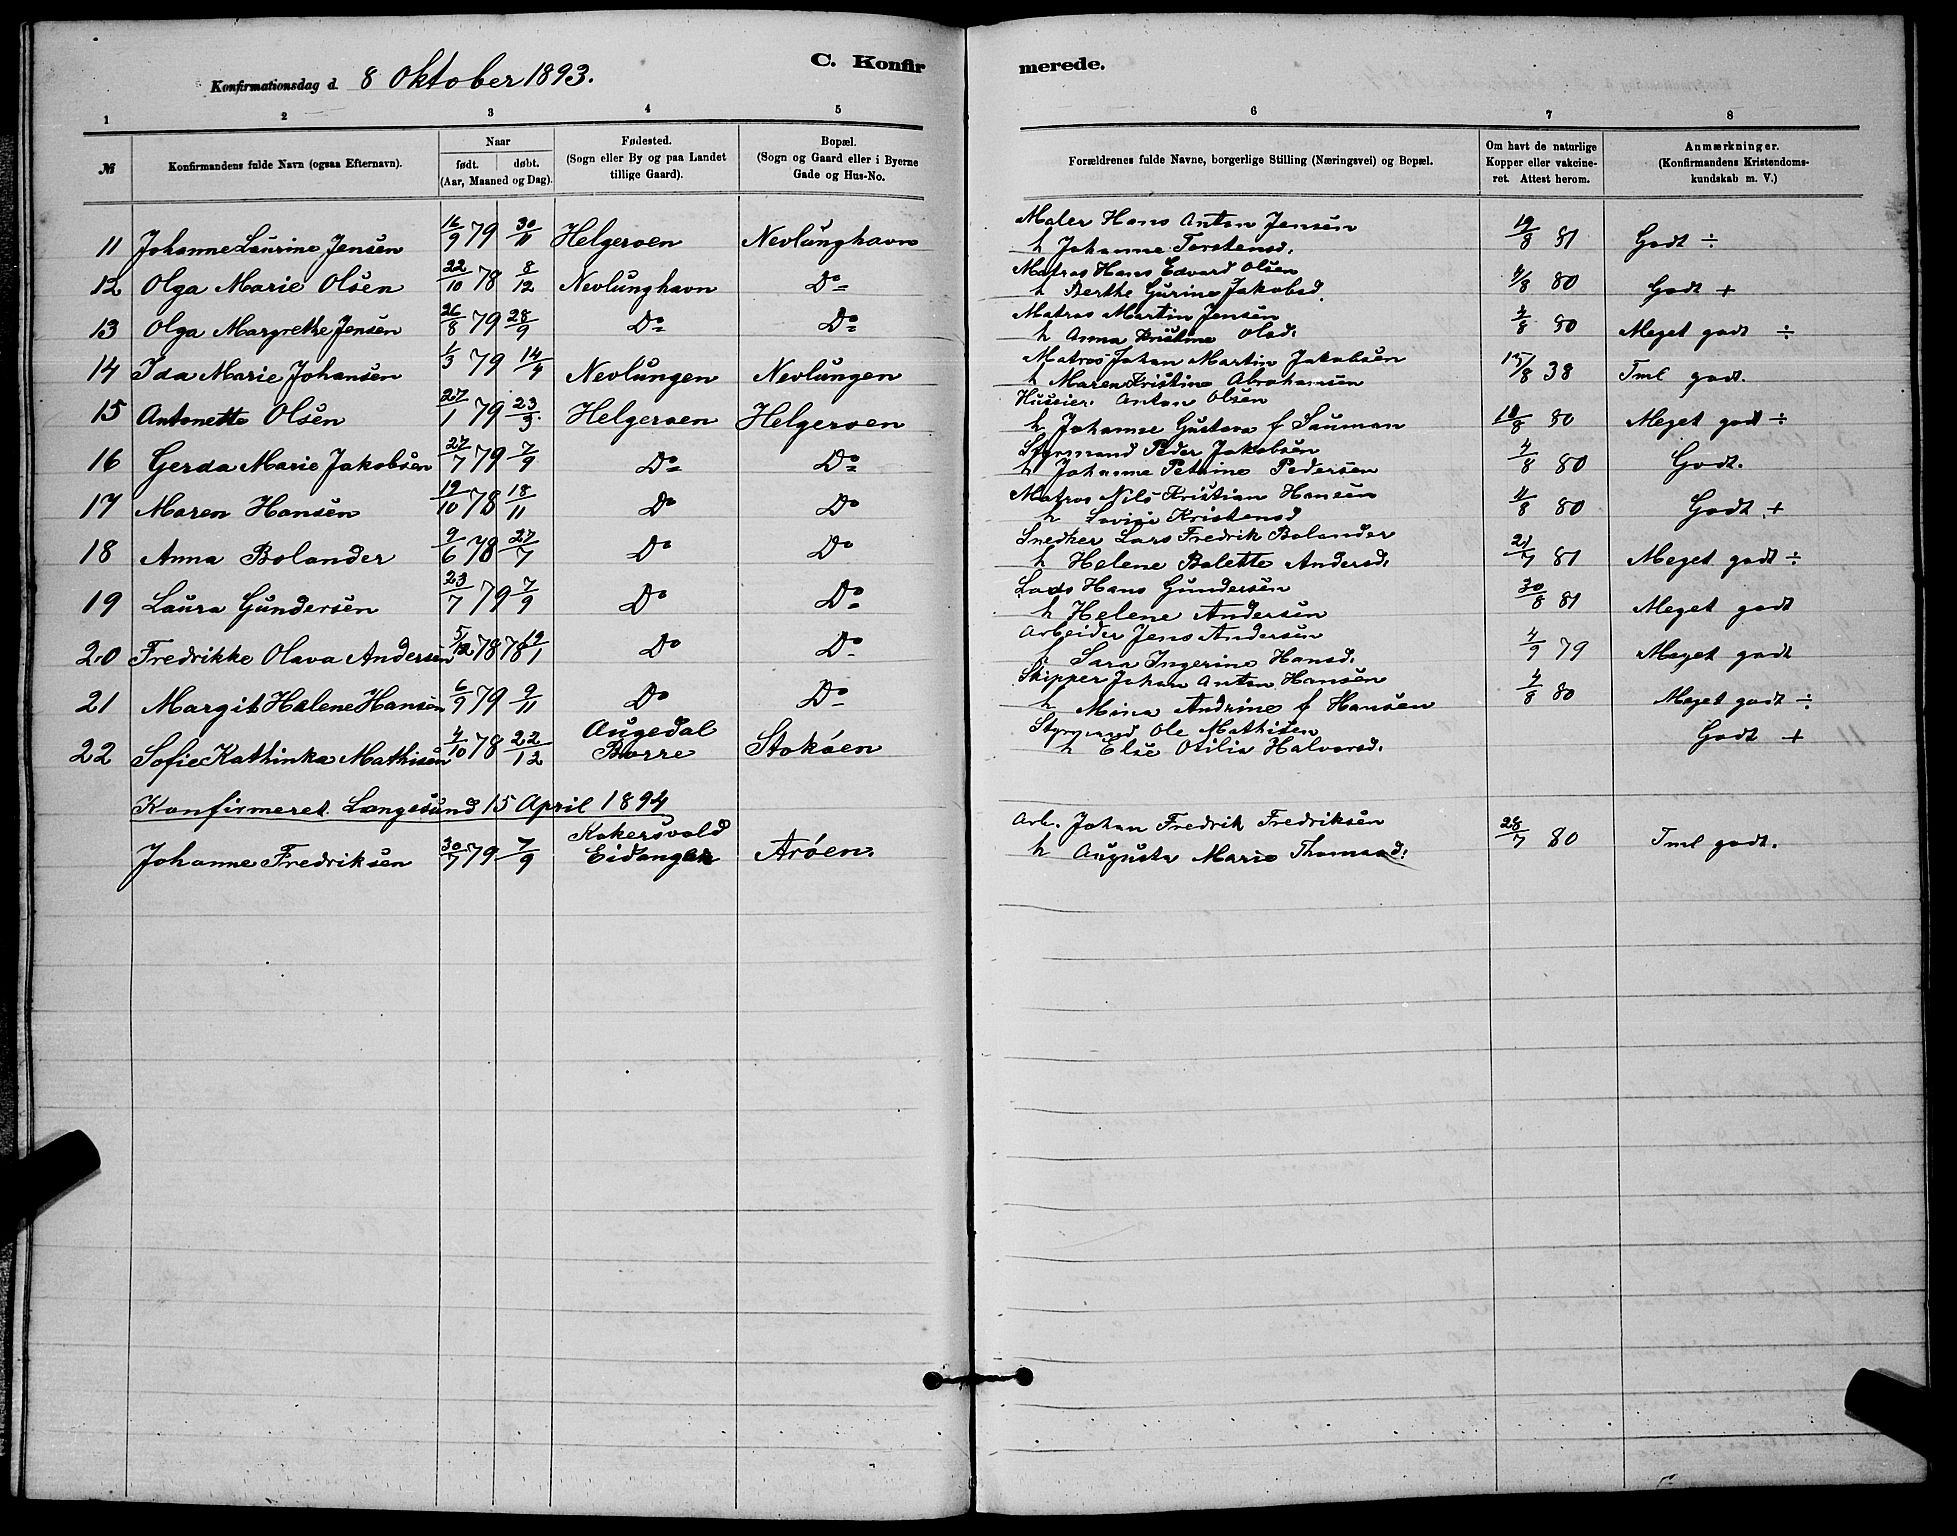 C. Konfir merede.
Konfirmationsdag d. 8 Oktober 1893.
1 2 3 4 5 6 7 8
№ Konfirmandens fulde Navn (ogsaa Efternavn). Naar født. døbt. (Aar, Maaned og Dag). Fødested. (Sogn eller By og paa Landet tillige Gaard). Bopæl. (Sogn og Gaard eller i Byerne Gade og Hus-No. Forældrenes fulde Navne, borgerlige Stilling (Næringsvei) og Bopæl. Om havt de naturlige Kopper eller vakcineret. Attest herom. Anmærkninger. (Konfirmandens Kristendomskundskab m. V.)
11 Johanne Laurine Jensen 16/9 79 30/11 Helgeroen Nevlunghavn Maler Hans Anton Jensen 19/8 81 Godt ÷
h Johanne Torstensd.
12 Olga Marie Olsen 22/10 78 8/12 Nevlunghavn Do Matros Hans Edvard Olsen 4/8 80 Godt +
h Berthe Gurine Jakobsd.
13 Olga Margrethe Jensen 26/8 79 28/9 Do Do Matros Martin Jensen 4/8 80 Meget godt ÷
h Anna Kristine Olsd.
14 Ida Marie Johansen 1/3 79 14/4 Nevlungen Nevlungen Matros Johan Martin Jakobsen 15/8 38 Tml godt.
h Maren Kristine Abrahamsen
15 Antonette Olsen 27/1 79 23/3 Helgeroen Helgeroen Hussier. Anton Olsen 18/8 80 Meget godt ÷
h Johanne Gustava f Sauman
16 Gerda Marie Jakobsen 27/7 79 7/9 Do Do Styrmand Peder Jakobsen 4/8 80 Godt.
h Johanne Petrine Pedersen
17 Maren Hansen 19/10 78 18/11 Do Do Matros Nils Kristian Hansen 4/8 80 Godt +
h Lovise Kristensd
18 Anna Bolander 9/6 78 27/7 Do Do Snedker Lars Fredrik Bolander 21/7 81 Meget godt ÷
h Helene Bolette Andersd.
19 Laura Gundersen 23/7 79 7/9 Do Do Lods Hans Gundersen 30/8 81 Meget godt
h Helene Andersen
20 Fredrikke Olava Andersen 5/12 78 19/1 Do Do Arbeider Jens Andersen 4/9 79 Meget godt
h Sara Ingerine Hansd.
21 Margit Helene Hansen 6/9 79 9/11 Do Do Skipper Johan Anton Hansen 4/8 80 Meget godt ÷
h Mina Andrine f Hansen
22 Sofie Kathinka Mathisen 4/10 78 22/12 Augedal Borre Stokøen Styrmand Ole Mathisen Godt +
h Else Otilie Halvorsd.
Konfirmeret. Langesund 15 April 1894
Johanne Fredriksen 30/7 79 7/9 Kokersvold Eidanger Arøen. Arb. Johan Fredrik Fredriksen 28/7 80 Tml godt.
h Augusta Marie Thomasd.